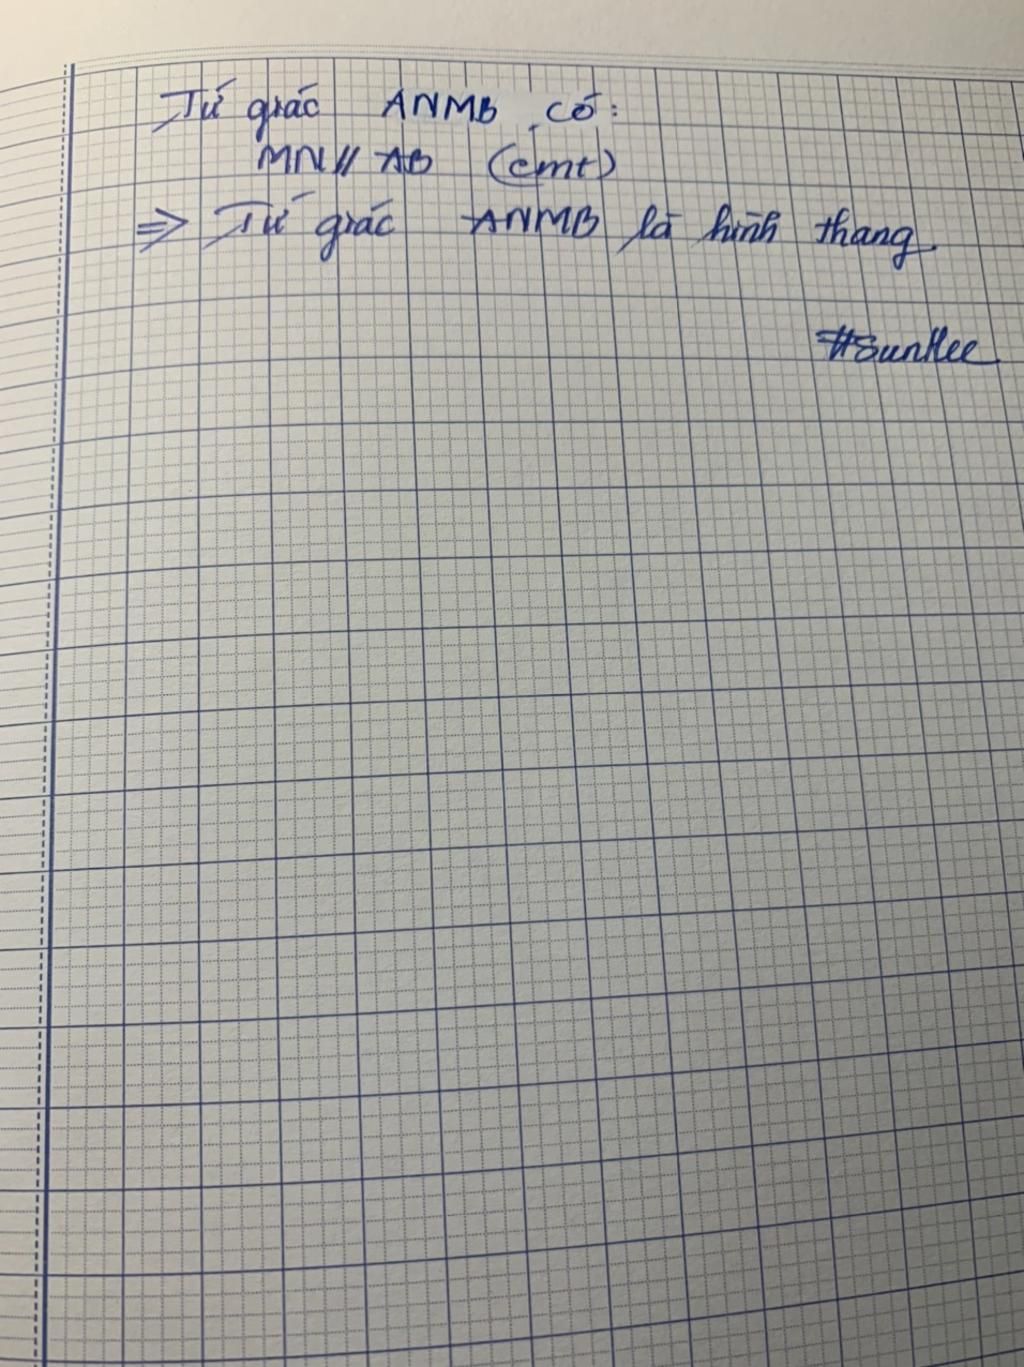 Tứ giác ANMB có:
MN // AB (cmt)
=> Tứ giác ANMB là hình thang
#SunHee